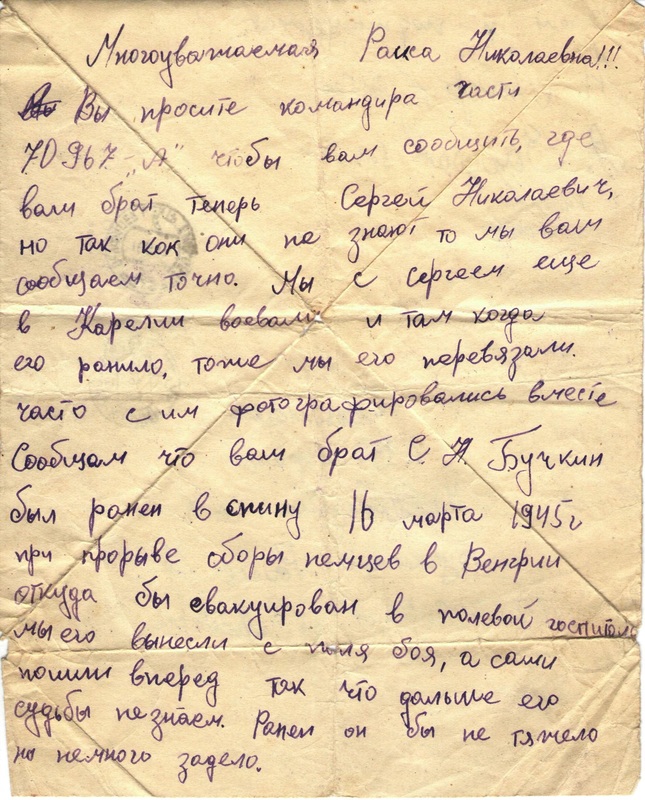 Многоуважаемая Раиса Николаевна!!!
Вы просите командира части
70967 „А" чтобы вам сообщить, где
ваш брат теперь Сергей Николаевич,
но так как они не знают то мы вам
сообщаем точно. Мы с сергеем еще
в Карелии воевали и там когда
его ранило, тоже мы его перевязали.
часто с им фотографировались вместе
Сообщам что ваш брат С. Н. Бучкин
был ранен в спину 16 марта 1945г
при прорыве оборы немцев в Венгрии
откуда бы евакуирован в полевой госпиталь
мы его вынесли с поля боя, а сами
пошли вперед так что дальше его
судьбы не знаем. Ранен он бы не тяжело
но немного задело.